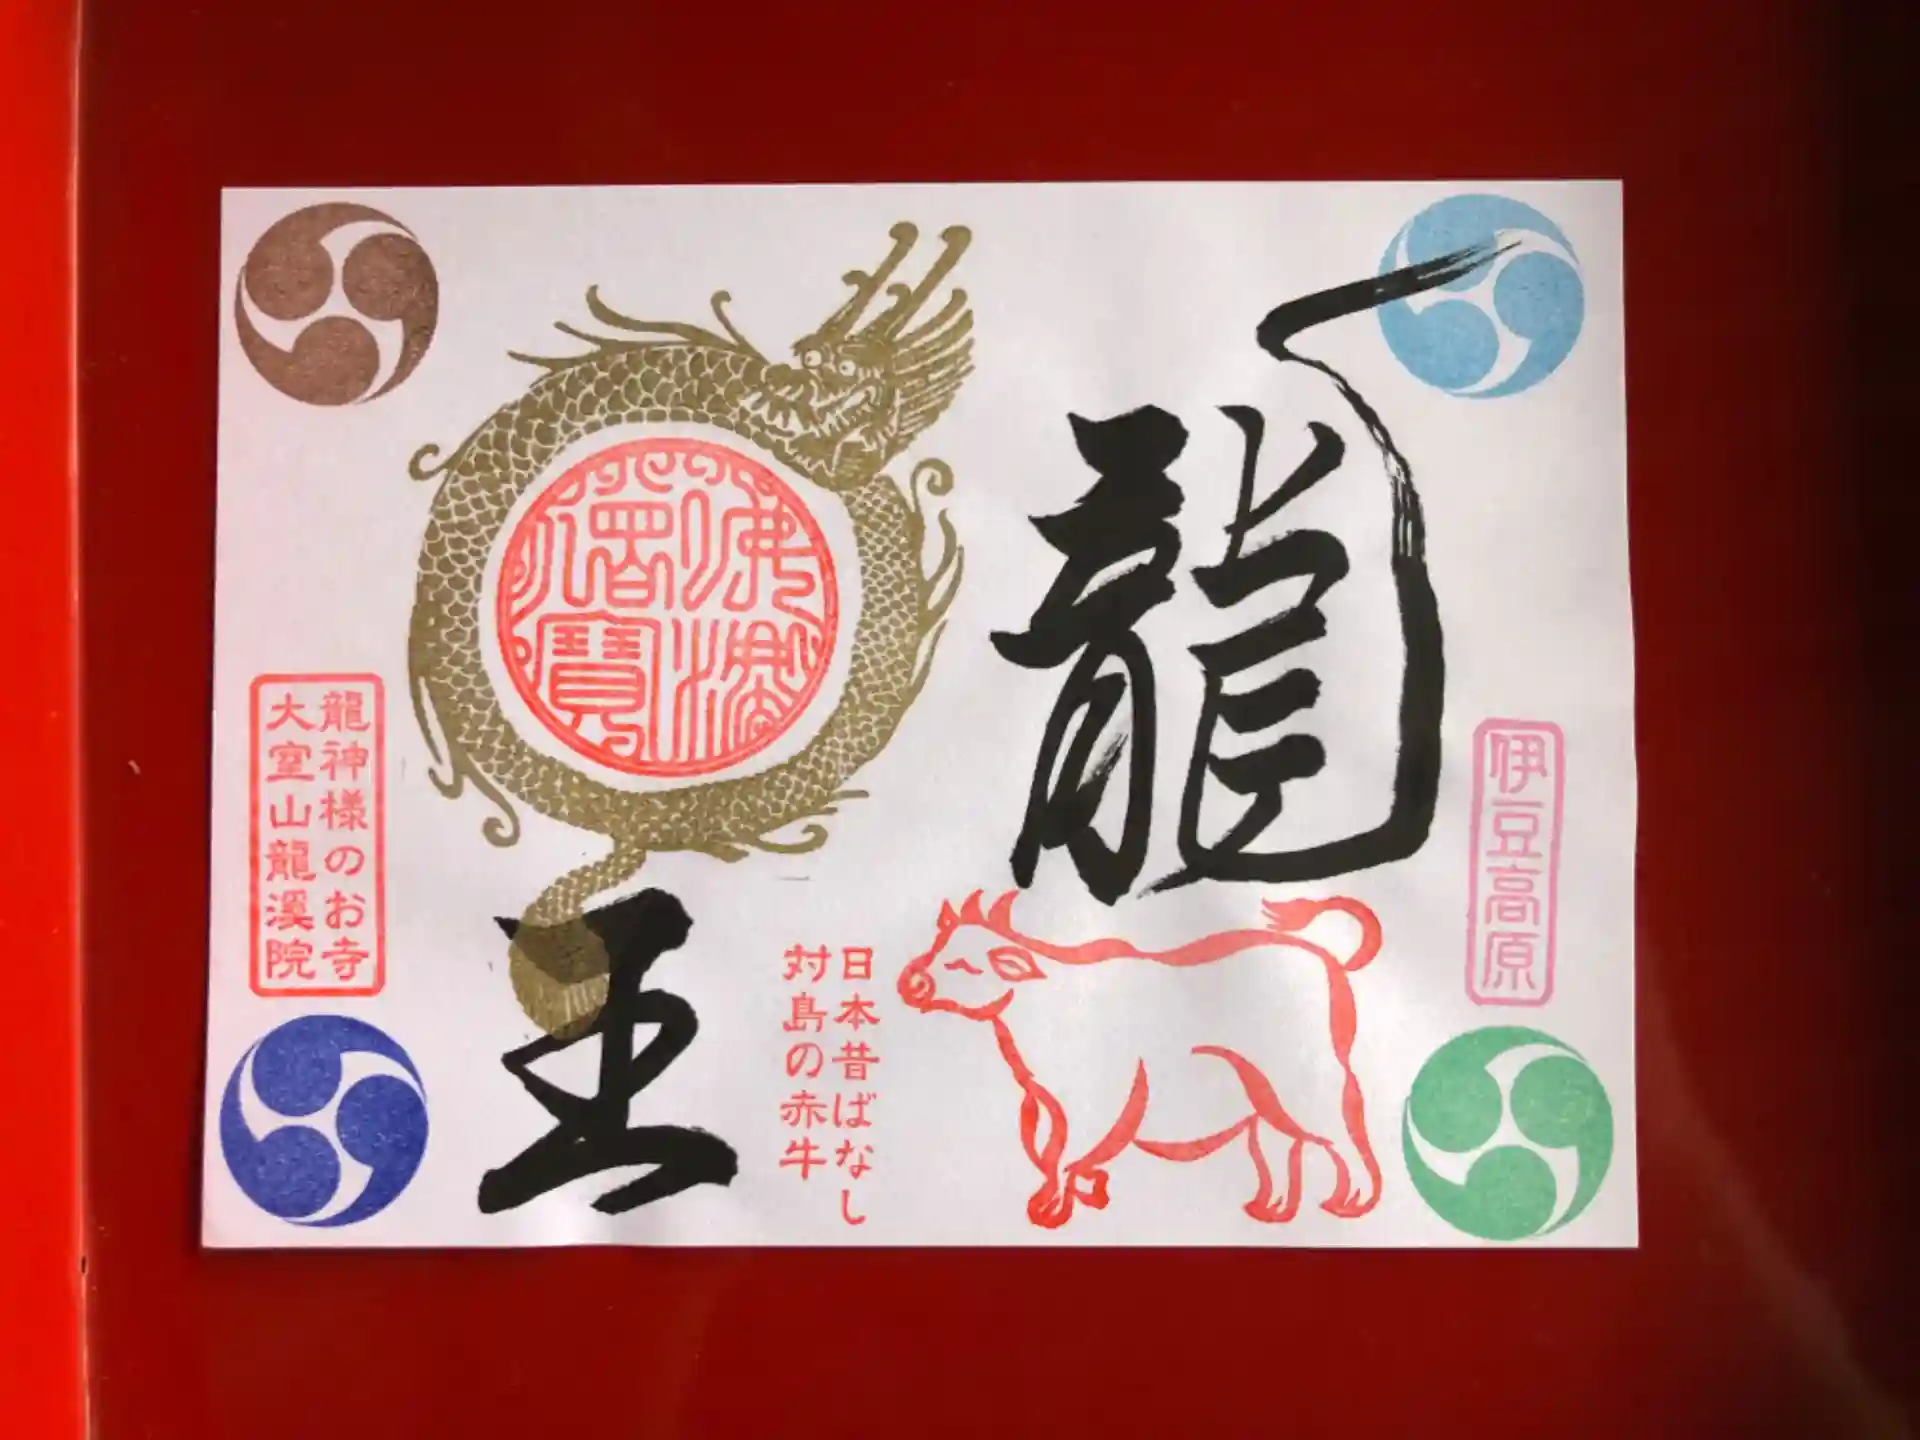 龍
王
伊豆高原
日本昔ばなし
対島の赤牛
佛法僧寶
龍神様のお寺
大室山龍溪院